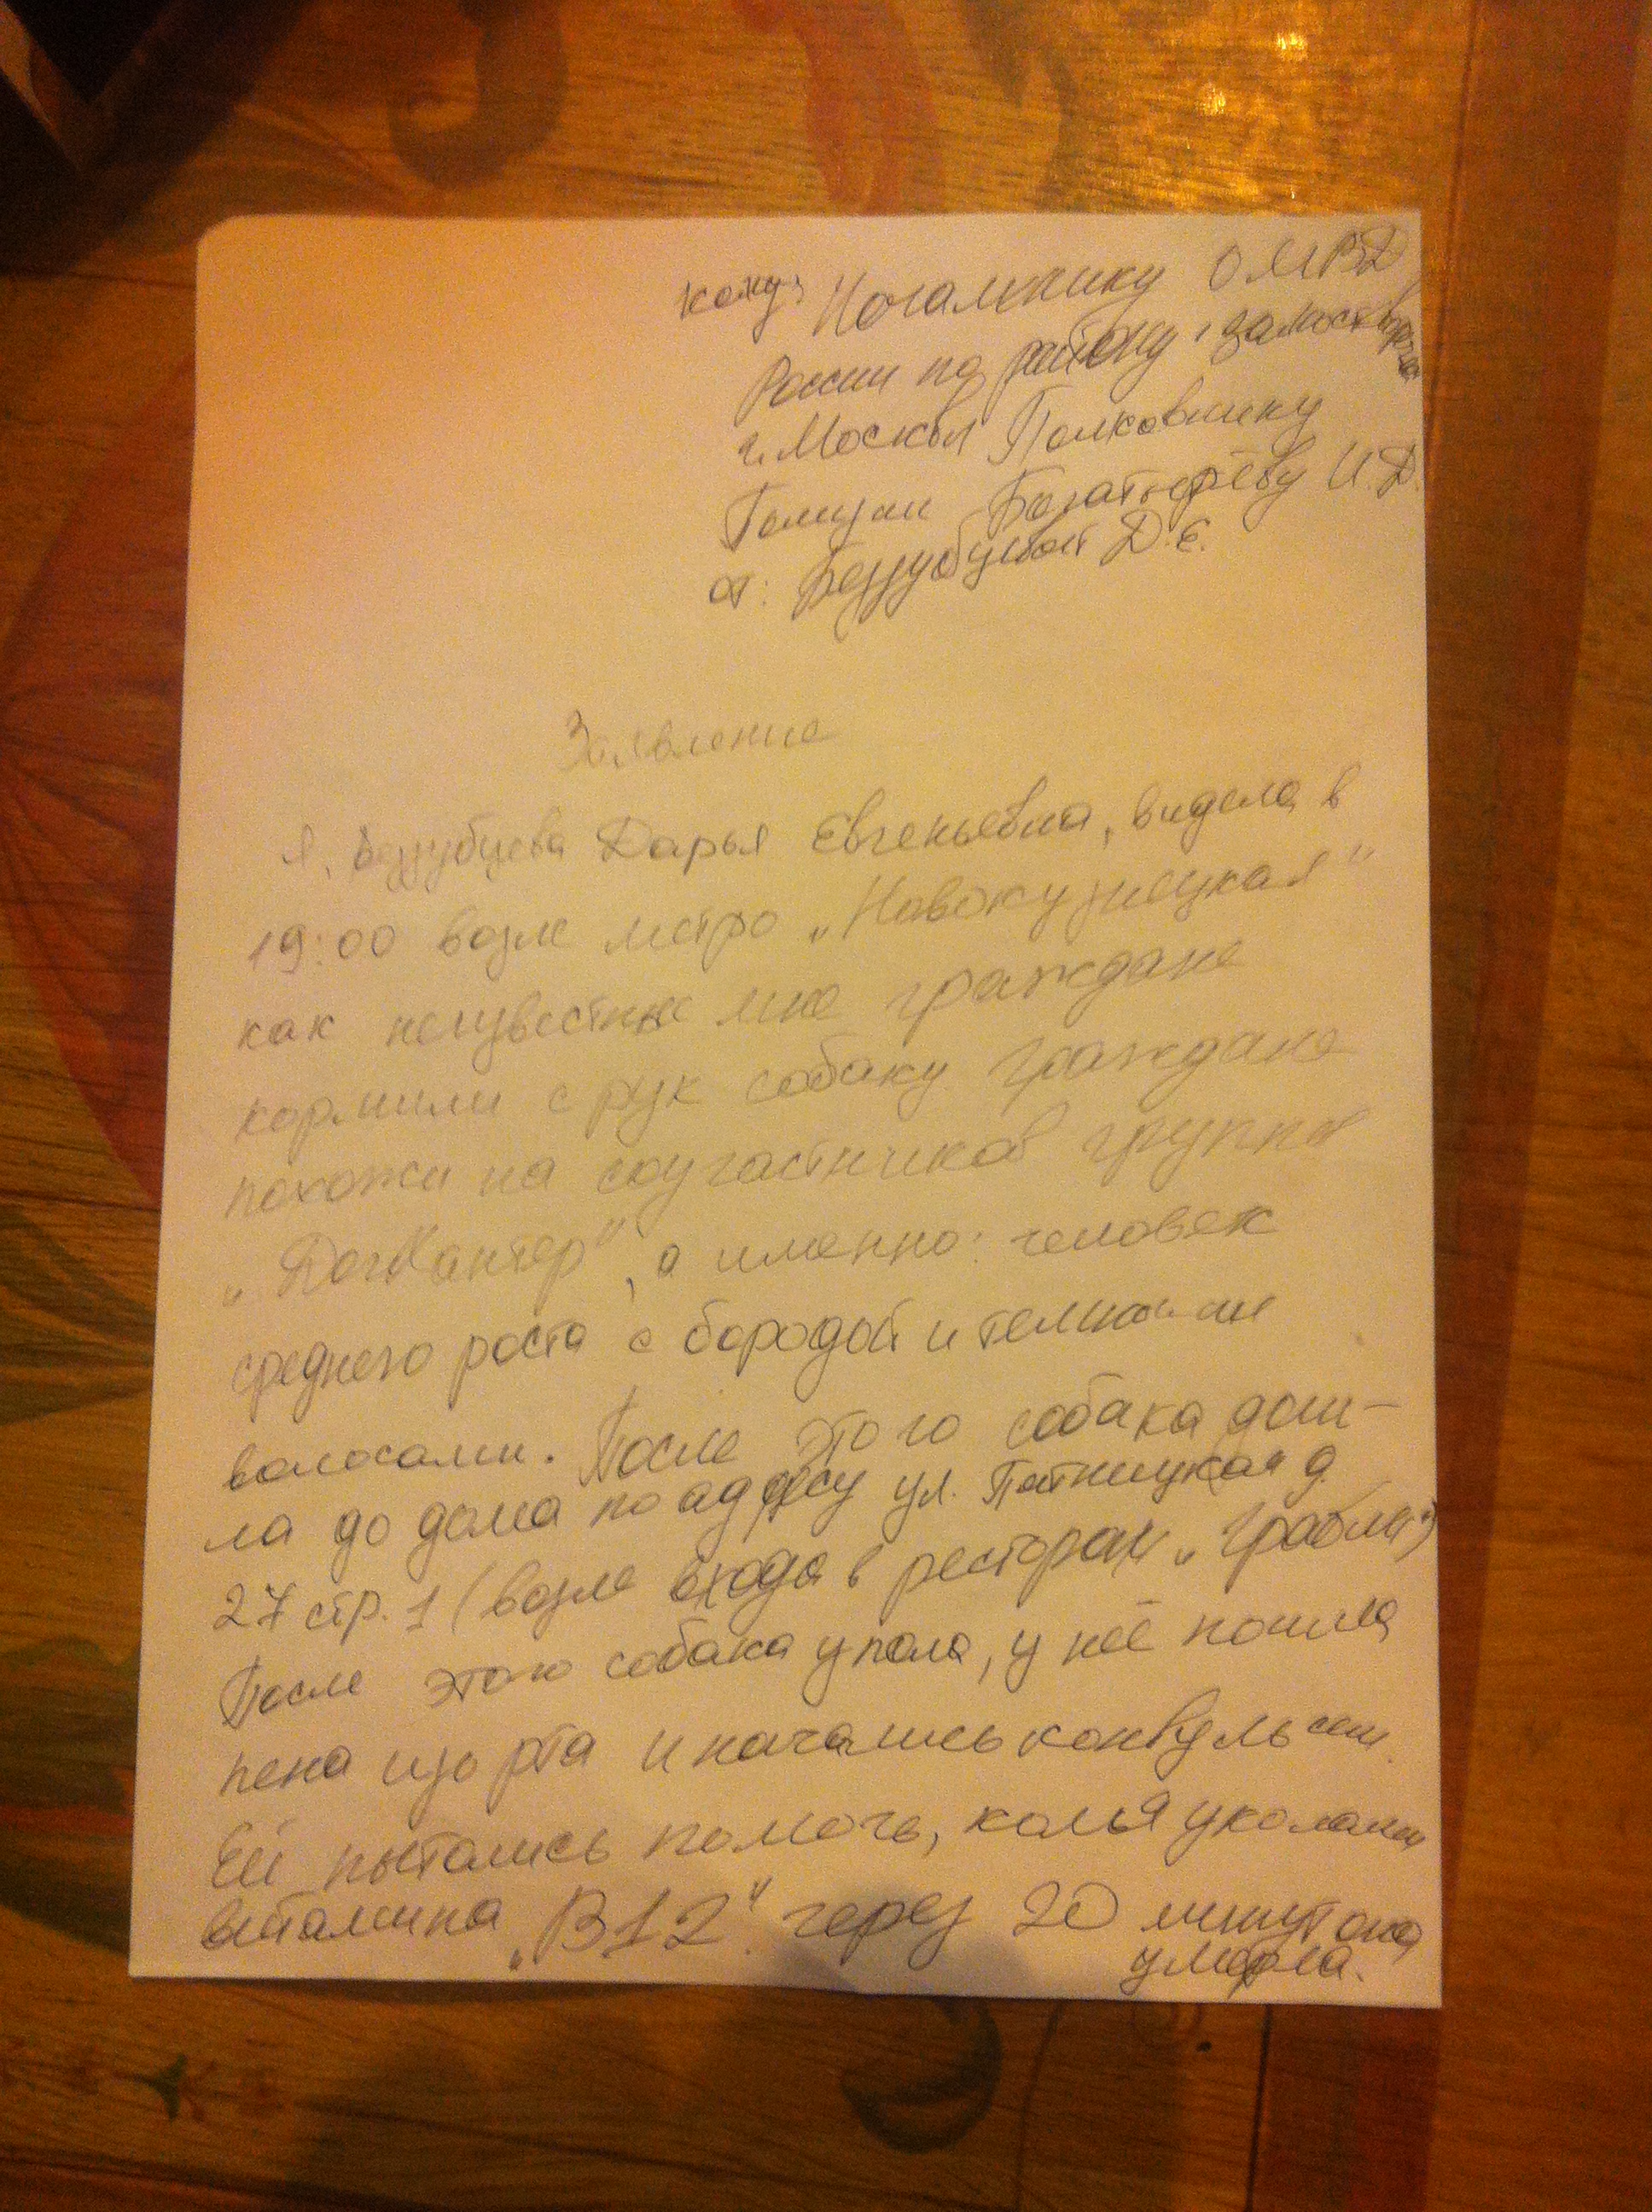 кому: Начальнику ОМВД
России по району Замоскворечье
г. Москвы Полковнику
Полиции Богатырёву И.Д.
от: Беззубцевой Д.Е.
Заявление
Я, Беззубцева Дарья Евгеньевна, видела в
19:00 возле метро „Новокузнецкая"
как неизвестные мне граждане
кормили с рук собаку Граждане
похожи на соучастников группы
„ДогХантер", а именно: человек
среднего роста с бородой и темными
волосами. После этого собака дош-
ла до дома по адресу ул. Пятницкая д.
27 стр. 1 (возле входа в ресторан „Грабли")
После этого собака упала, у неё пошла
пена изо рта и начались конвульсии.
Ей пытались помочь, колья уколами
витамина „B12". через 20 минут она
умерла.